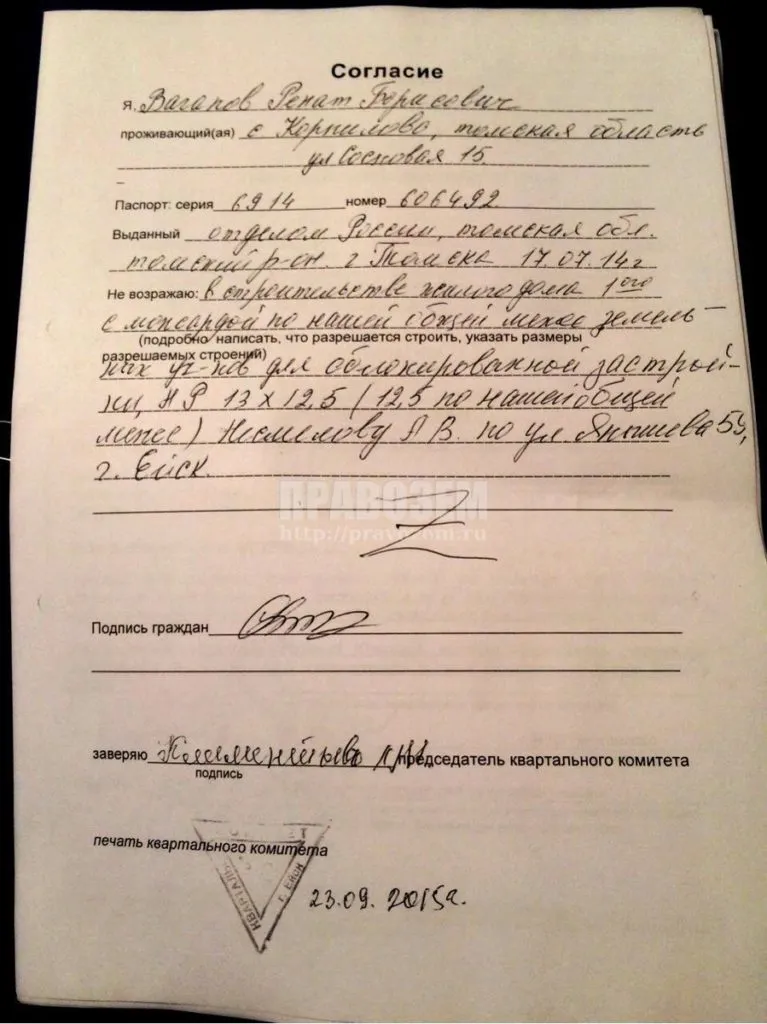 Согласие
Я, Вагапов Ренат Борисович
проживающий(ая) с Корнилово, томская область
ул Сосновая 15.
Паспорт: серия 6914 номер 606492
Выданный отделом России, томская обл.
томский р-он. г Томска 17.07.14г
Не возражаю: в строительстве жилого дома 1ого
с мансардой по нашей общей меже земель-
(подробно написать, что разрешается строить, указать размеры
разрешаемых строений)
ных уч-ков для облокированной застрой-
ки, НР 13 х 12,5 (12,5 по нашей общей
меже) Несмелову А В. по ул Янышева 59,
г. Ейск.
ПРАВОЗЕМ
http://pravozem.ru
Подпись граждан
заверяю председатель квартального комитета
подпись
печать квартального комитета
КВАРТАЛЬ г. ЕЙСК
23.09. 2015г.